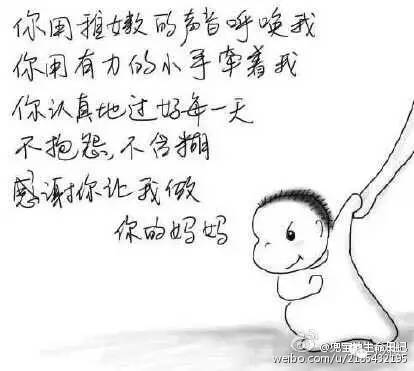 你用稚嫩的声音呼唤我
你用有力的小手牵着我
你认真地过好每一天
不抱怨,不含糊
感谢你让我做
你的妈妈
weibo.com/u/2165432135